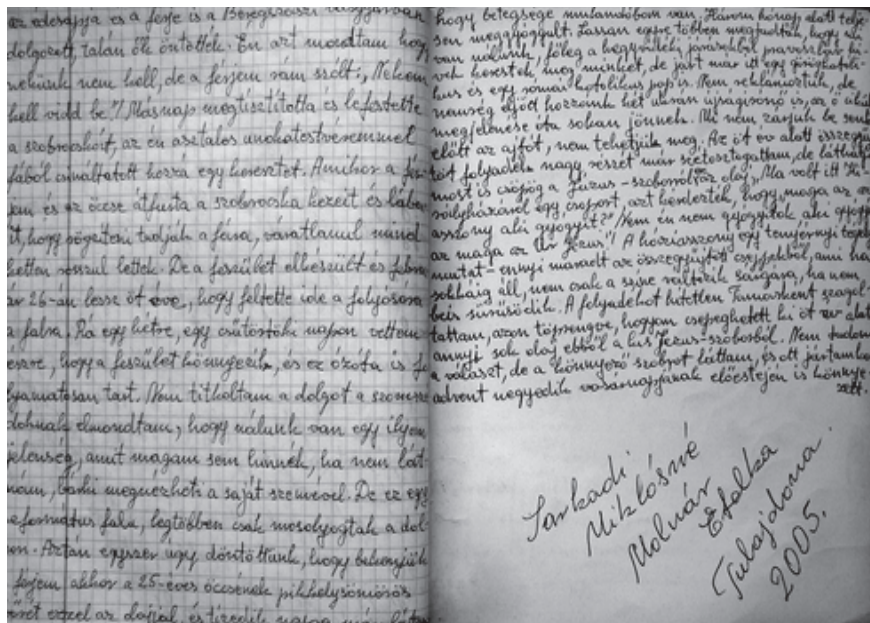 az édesapja és a férje is a Beregszászi
dolgozott, talán ők öntötték. Én azt mondtam hogy
nekünk nem kell, de a férjem rám szólt: „Nekem
kell vidd be"! Másnap megtisztította és lefestette
a szobrocskát, az én asztalos unokatestvéremmel
fából csináltatott hozzá egy keresztet. Amikor a fér-
jem és az öccse átfúrta a szobrocska kezeit és lába-
it, hogy rögzíteni tudják a fára, váratlanul mind
ketten rosszul lettek. De a feszület elkészült és febru
ár 26-án lesz öt éve, hogy feltette ide a folyosóra
a falra. Rá egy hétre, egy csütörtöki napon vettem
észre, hogy a feszület könnyezik, és ez azóta is fo
lyamatosan tart. Nem titkoltam a dolgot a szomszé
doknak elmondtam, hogy nálunk van egy ilyen
jelenség, amit magam sem hinnék, ha nem lát-
nám, bárki megnézheti a saját szemével. De ez egy
református falu, legtöbben csak mosolyogtak a dol
gon. Aztán egyszer úgy döntöttünk, hogy bekenjük
férjem akkor a 25-éves öccsének pikkelysömörös
ezzel az olajjal, és tizedik napra már
hogy betegsége mulandóban van. Három hónap alatt telje-
sen meggyógyult. Lassan egyre többen megtudták, hogy mi
van nálunk, főleg a hegyvidéki járásokból pravoszláv hí-
vek kerestek meg minket, de járt már itt egy görögkatoli-
kus és egy római katolikus pap is. Nem reklámoztuk, de
nemrég eljött hozzánk két ukrán újságírónő is, az ő
megjelenése óta sokan jönnek. Mi nem zárjuk be senki
előtt az ajtót, nem tehetjük meg. Az öt év alatt összegyűl
tött folyadék nagy részét már szétosztogattam, de láthatják
most is csöpög a Jézus-szoborról az olaj. Ma volt itt Ki-
rályházáról egy csoport, azt kérdezték, hogy maga az az
asszony aki gyógyít?" Nem én nem gyógyítok aki gyógyít
az maga az Úr Jézus"! A háziasszony egy tenyérnyi
mutat - ennyi maradt az összegyűjtött cseppekből, ami ha
sokáig áll, nem csak a színe változik sárgára, ha nem
be is sűrűsödik. A folyadékot hitetlen Tamásként szagol-
tattam, azon töprengve, hogyan csepeghetett ki öt év alatt
annyi sok olaj ebből a kis Jézus-szoborból. Nem tudom
a választ, de a könnyező szobrot láttam, és ott jártamkor
advent negyedik vasárnapjának előestéjén is könnye-
zett.
Sarkadi
Miklósné
Molnár
Etelka
Tubajdona.
2005.